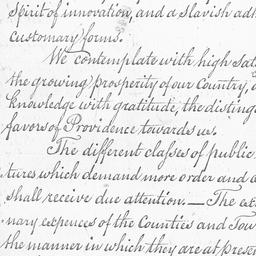 Spirit of innovation, and a slavish adh
customary forms.
We contemplate with high sat
the growing prosperity of our Country, a
knowledge with gratitude, the disting
favors of Providence towards us.
The different classes of public
tures which demand more order and a
shall receive due attention — The ex
nary expences of the Counties and Tow
the manner in which they are at prese